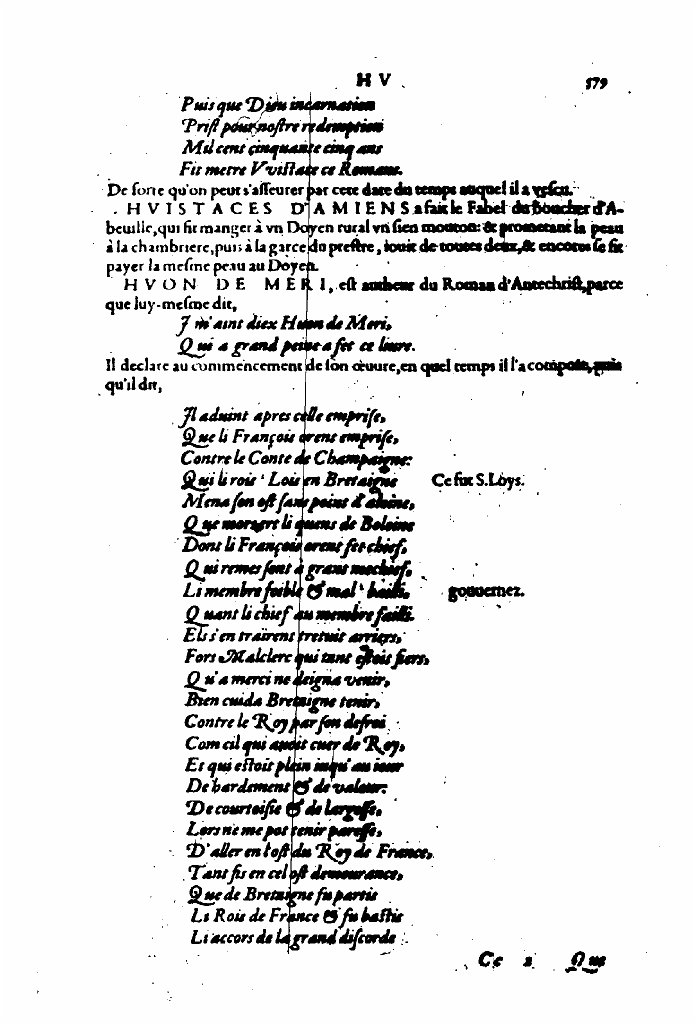 HV
579
Puis que Dieu incarnation
Prist pour nostre redemption
Mil cent cinquante cinq ans
Fit metre Vvistace ce Romans.
De sorte qu'on peut s'asseurer par cete date du temps auquel il a vescu.
HVISTACES D'AMIENS a fait le Fabel du Boucher d'A-
beuille, qui fit manger à vn Doyen rural vn sien mouton: & prometant la peau
à la chambriere, puis à la garce du prestre, iouit de toutes deux, & encores se fit
payer la mesme peau au Doyen.
HVON DE MERI, est autheur du Roman d'Antechrist, parce
que luy-mesme dit,
J m'aint diex Huon de Meri,
Qui a grand peine a fet ce liure.
Il declare au commencement de son œuure, en quel temps il l'a composé, puis
qu'il dit,
Il aduint apres celle emprise,
Que li François orent emprise,
Contre le Conte de Champaigne:
Qui li rois ' Lois en Bretaigne
Ce fut S. Loys.
Mena son ost sans point d'aloine,
Que morzert li quens de Boloine
Dont li François orent fet chief,
Qui remes sont à grans mechief,
Li membre foible & mal ' bailli,
gouuernez.
Quant li chief au membre failli.
Els s'en traïrent tretuit arriers,
Fors Malclerc qui tant estois fiers,
Qu'a merci ne deigna venir,
Bien cuida Bretaigne tenir,
Contre le Roy par son desroi
Com cil qui auoit cuer de Roy,
Et qui estoit plein iusqu'au iour
De hardement & de valour:
De courtoisie & de largesse,
Lors ne me pot tenir paresse,
D'aller en l'ost du Roy de France,
Tant fis en cel ost demourance,
Que de Bretaigne fu partis
Li Rois de France & fu bastis
Li accors de la grand discorde
Cc 2 Que